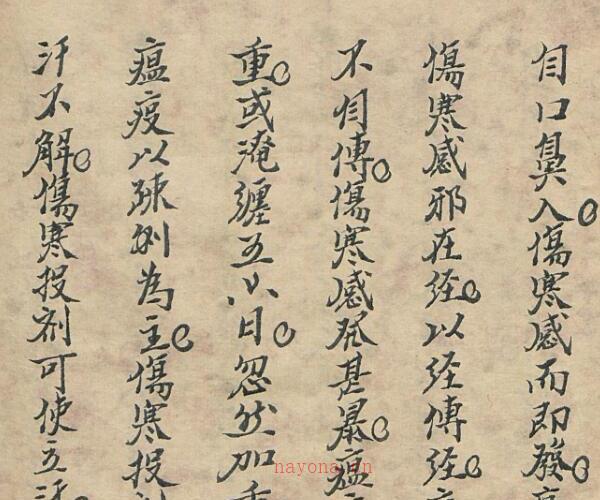 自口鼻入。傷寒感而即發。
傷寒感邪在經。以經傳經。
不自傳。傷寒感發甚暴。瘟
重。或淹纏五六日。忽然加重
瘟疫以疎利為主。傷寒投
汗不解。傷寒投劑可使立汗
nayona.cn